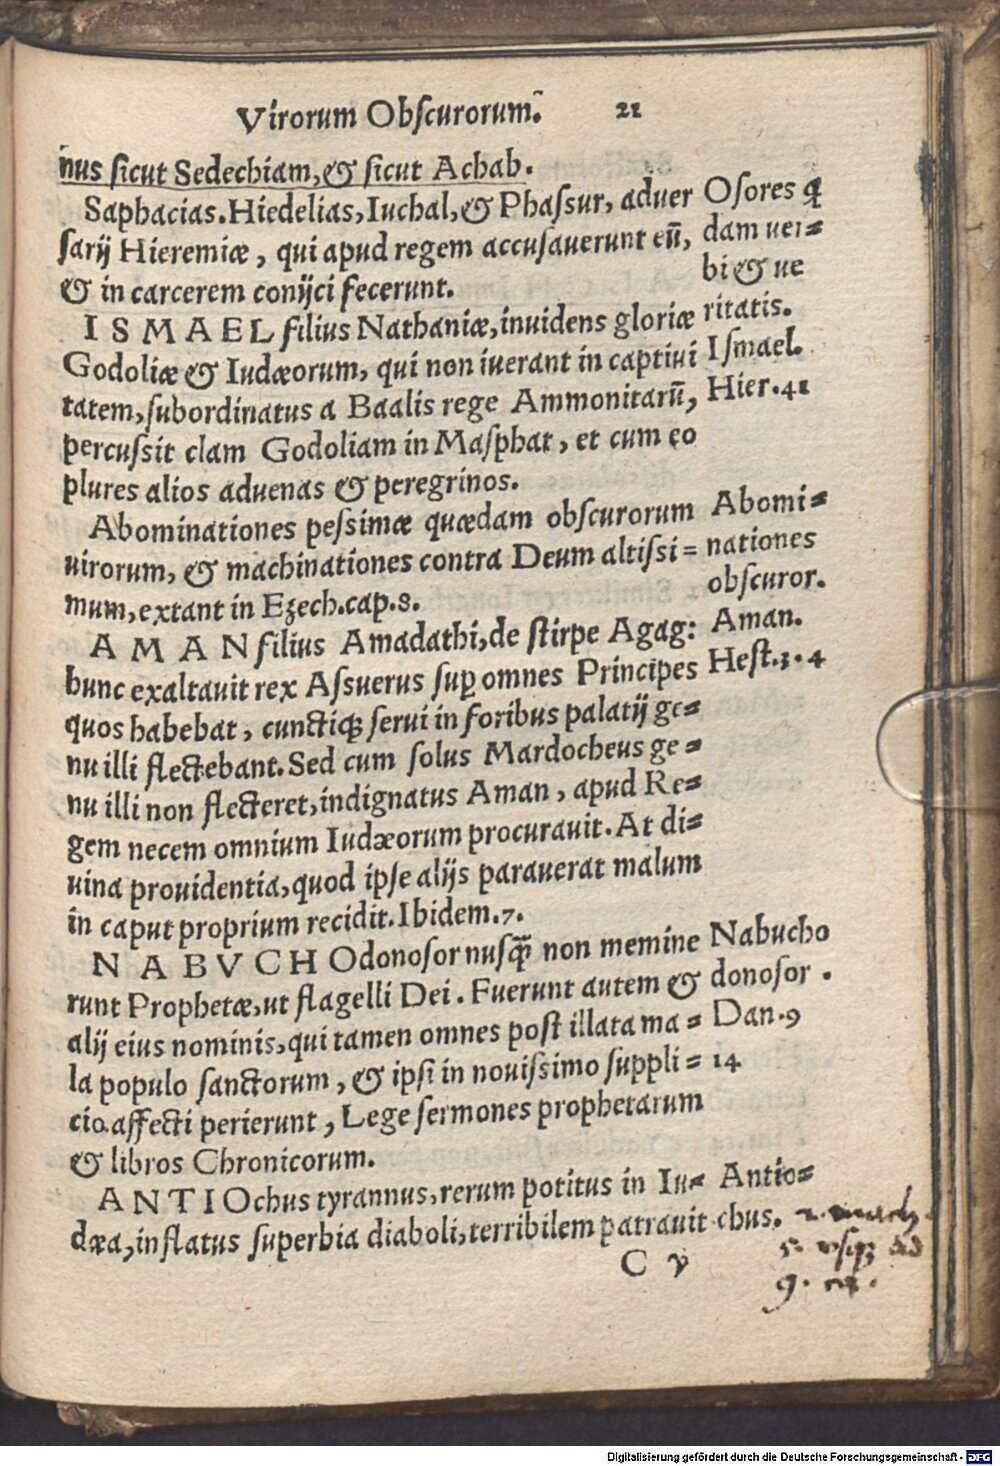 Virorum Obscurorum. 21
nus sicut Sedechiam, & sicut Achab.
Saphacias. Hiedelias, Iuchal, & Phassur, aduer
sarij Hieremiæ, qui apud regem accusauerunt eū,
& in carcerem conijci fecerunt.
Osores q̃
dam uer=
bi & ue
ritatis.
I S M A E L filius Nathaniæ, inuidens gloriæ
Godoliæ & Iudæorum, qui non iuerant in captiui
tatem, subordinatus a Baalis rege Ammonitarū,
percussit clam Godoliam in Masphat, et cum eo
plures alios aduenas & peregrinos.
Ismael.
Hier. 41
Abominationes pessimæ quædam obscurorum
uirorum, & machinationes contra Deum altissi=
mum, extant in Ezech. cap. 8.
Abomi=
nationes
obscuror.
A M A N filius Amadathi, de stirpe Agag:
hunc exaltauit rex Assuerus sup omnes Principes
quos habebat, cunctiq; serui in foribus palatij ge=
nu illi flectebant. Sed cum solus Mardocheus ge=
nu illi non flecteret, indignatus Aman, apud Re=
gem necem omnium Iudæorum procurauit. At di=
uina prouidentia, quod ipse alijs parauerat malum
in caput proprium recidit. Ibidem. 7.
Aman.
Hest. 3. 4
N A B V C H Odonosor nusq̃ non memine
runt Prophetæ, ut flagelli Dei. Fuerunt autem &
alij eius nominis, qui tamen omnes post illata ma=
la populo sanctorum, & ipsi in nouissimo suppli=
cio affecti perierunt, Lege sermones prophetarum
& libros Chronicorum.
Nabucho
donosor.
Dan. 9
14
A N T I Ochus tyrannus, rerum potitus in Iu=
dæa, inflatus superbia diaboli, terribilem patrauit
Antio=
chus.
2. mach.
5. usq; ad
9. ca.
C v
Digitalisierung gefördert durch die Deutsche Forschungsgemeinschaft - DFG